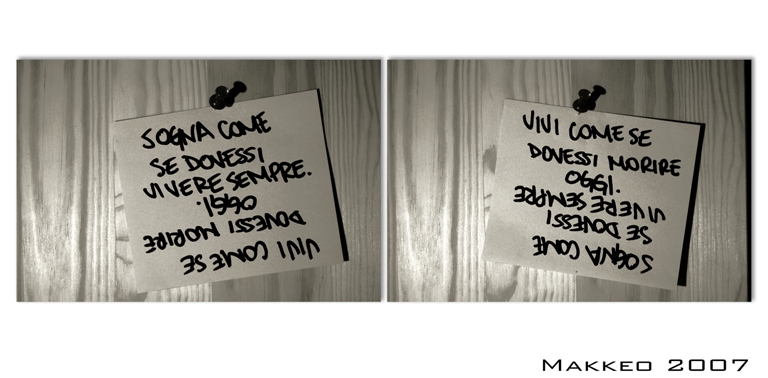 SOGNA COME
SE DOVESSI
VIVERE SEMPRE.
OGGI.
DOVESSI MORIRE
VIVI COME SE
VIVI COME SE
DOVESSI MORIRE
OGGI.
VIVERE SEMPRE
SE DOVESSI
SOGNA COME
MAKKEO 2007